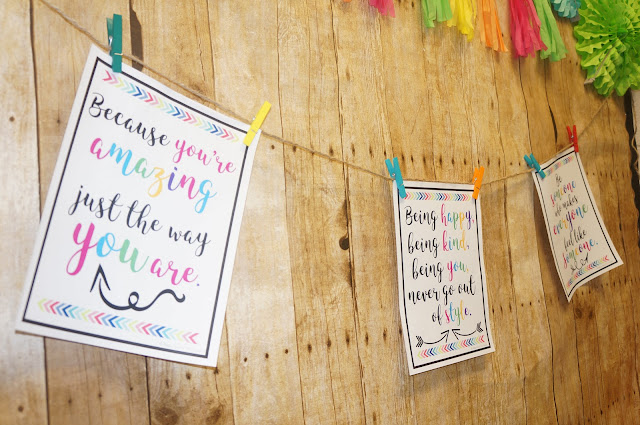 Because you're
amazing
just the way
you are.
Being happy,
being kind,
being you,
never go out
of style.
Be
someone
who makes
everyone
feel like
someone.